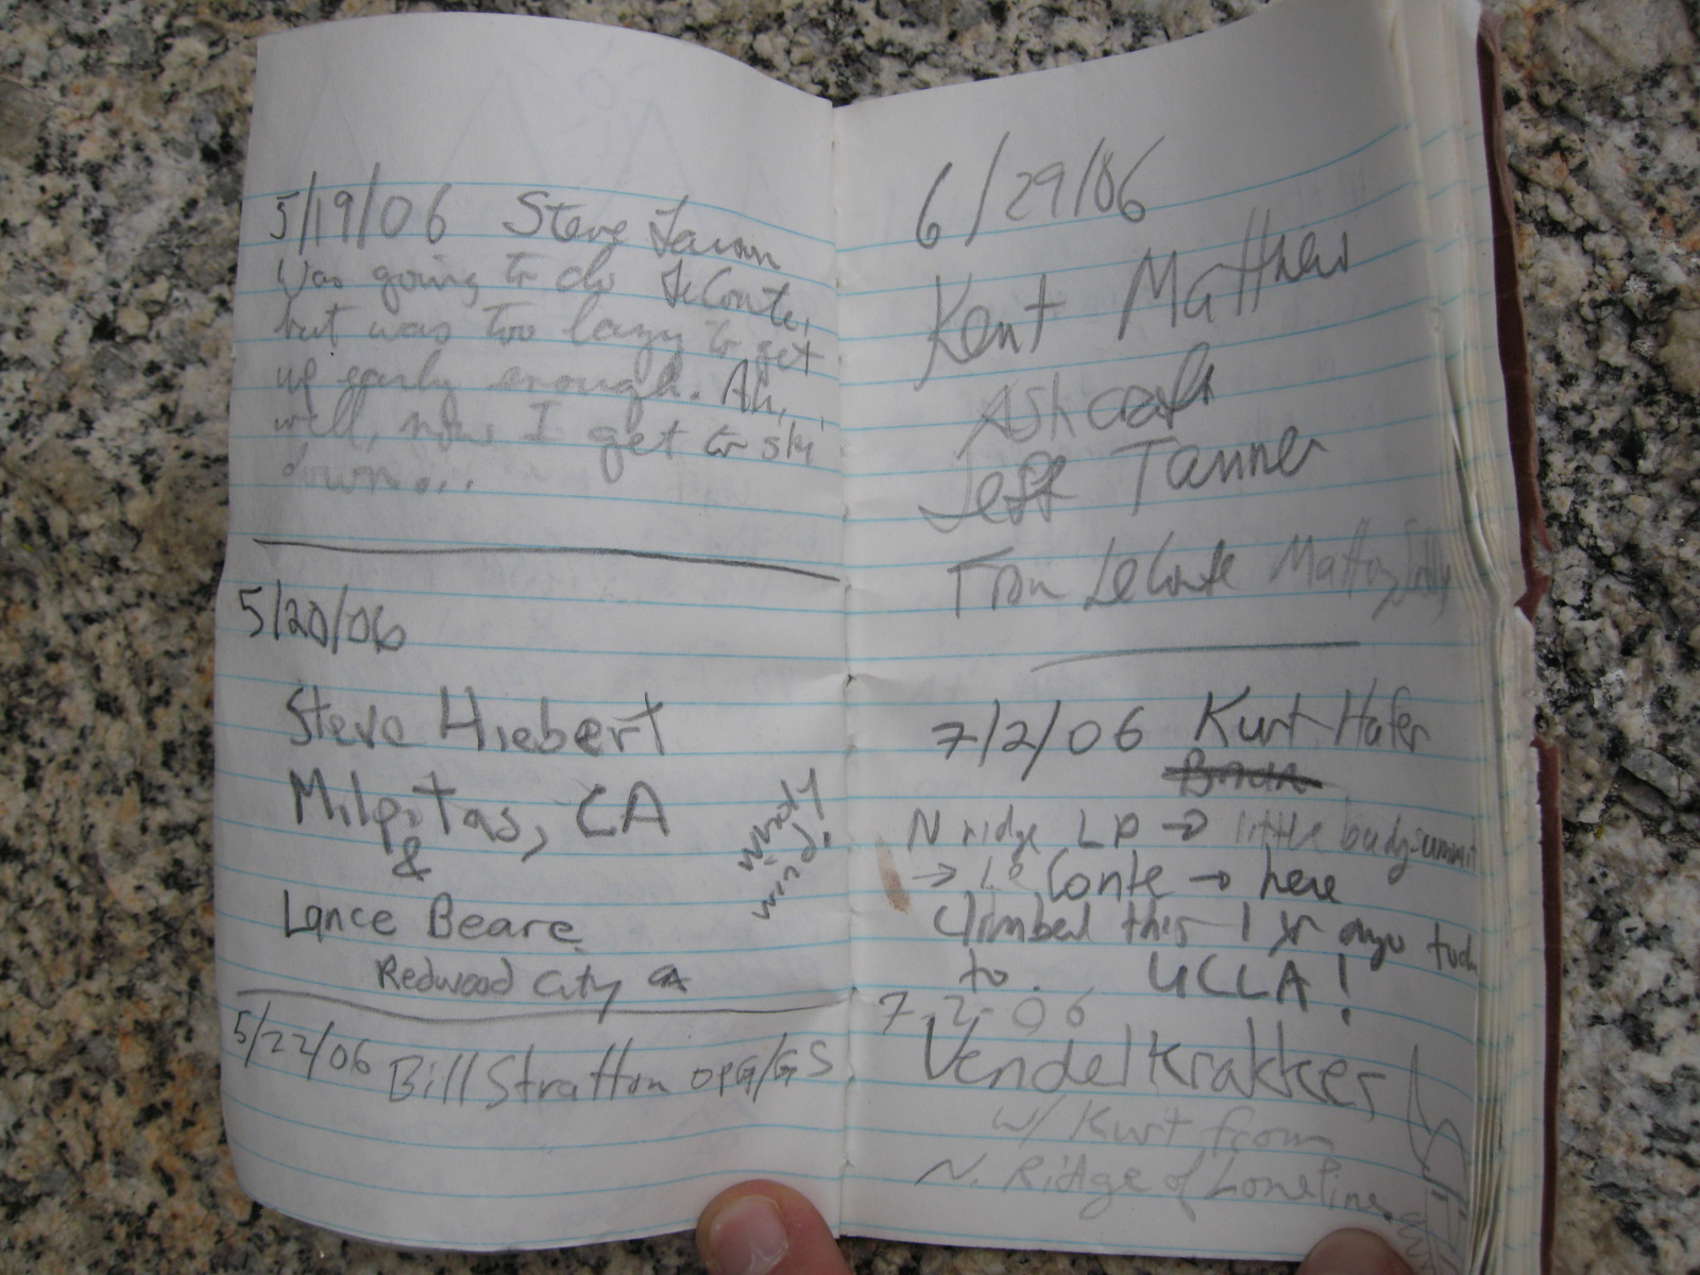 5/19/06 Steve Larson
Was going to do LeConte,
but was too lazy to get
up early enough. Ah,
well, now I get to ski
down...
5/20/06
Steve Hiebert
Milpitas, CA
&
Lance Beare
Redwood City CA
windy
wind!
5/22/06 Bill Stratton OPG/GS
6/29/06
Kent Matthew
Ashcraft
Jeff Tanner
From LeConte
7/2/06 Kurt Hafer
N ridge LP → little baldy summit
→ Le Conte → here
Climbed this 1 yr ago today
to. UCLA!
7-2-06
Vendelkrakkes
w/ Kurt from
N. Ridge of Lone Pine